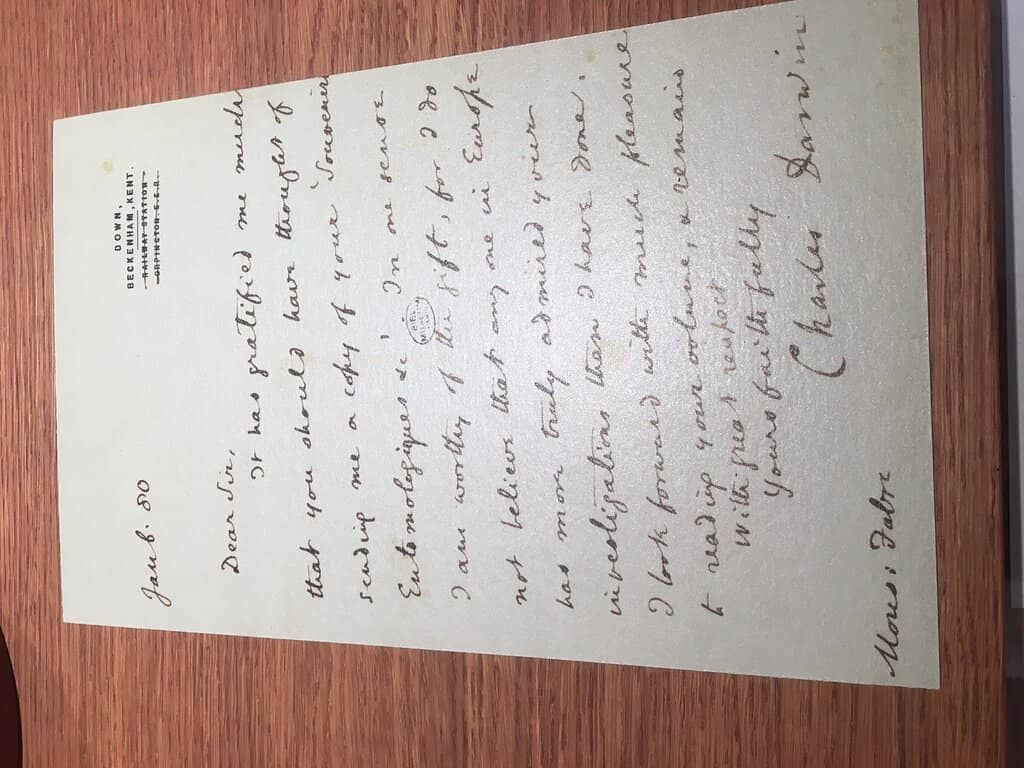 DOWN,
BECKENHAM, KENT.
RAILWAY STATION
ORPINGTON. S.E.R.
Janb. 80
Dear Sir,
It has gratified me much
that you should have thought of
sending me a copy of your 'Souvenirs
Entomologiques &c' In one sense
I am worthy of the gift, for I do
not believe that any one in Europe
has more truly admired your
investigations than I have done.
I look forward with much pleasure
to reading your volume, & remain
with great respect
Yours faithfully
Charles Darwin
Mons: Fabre